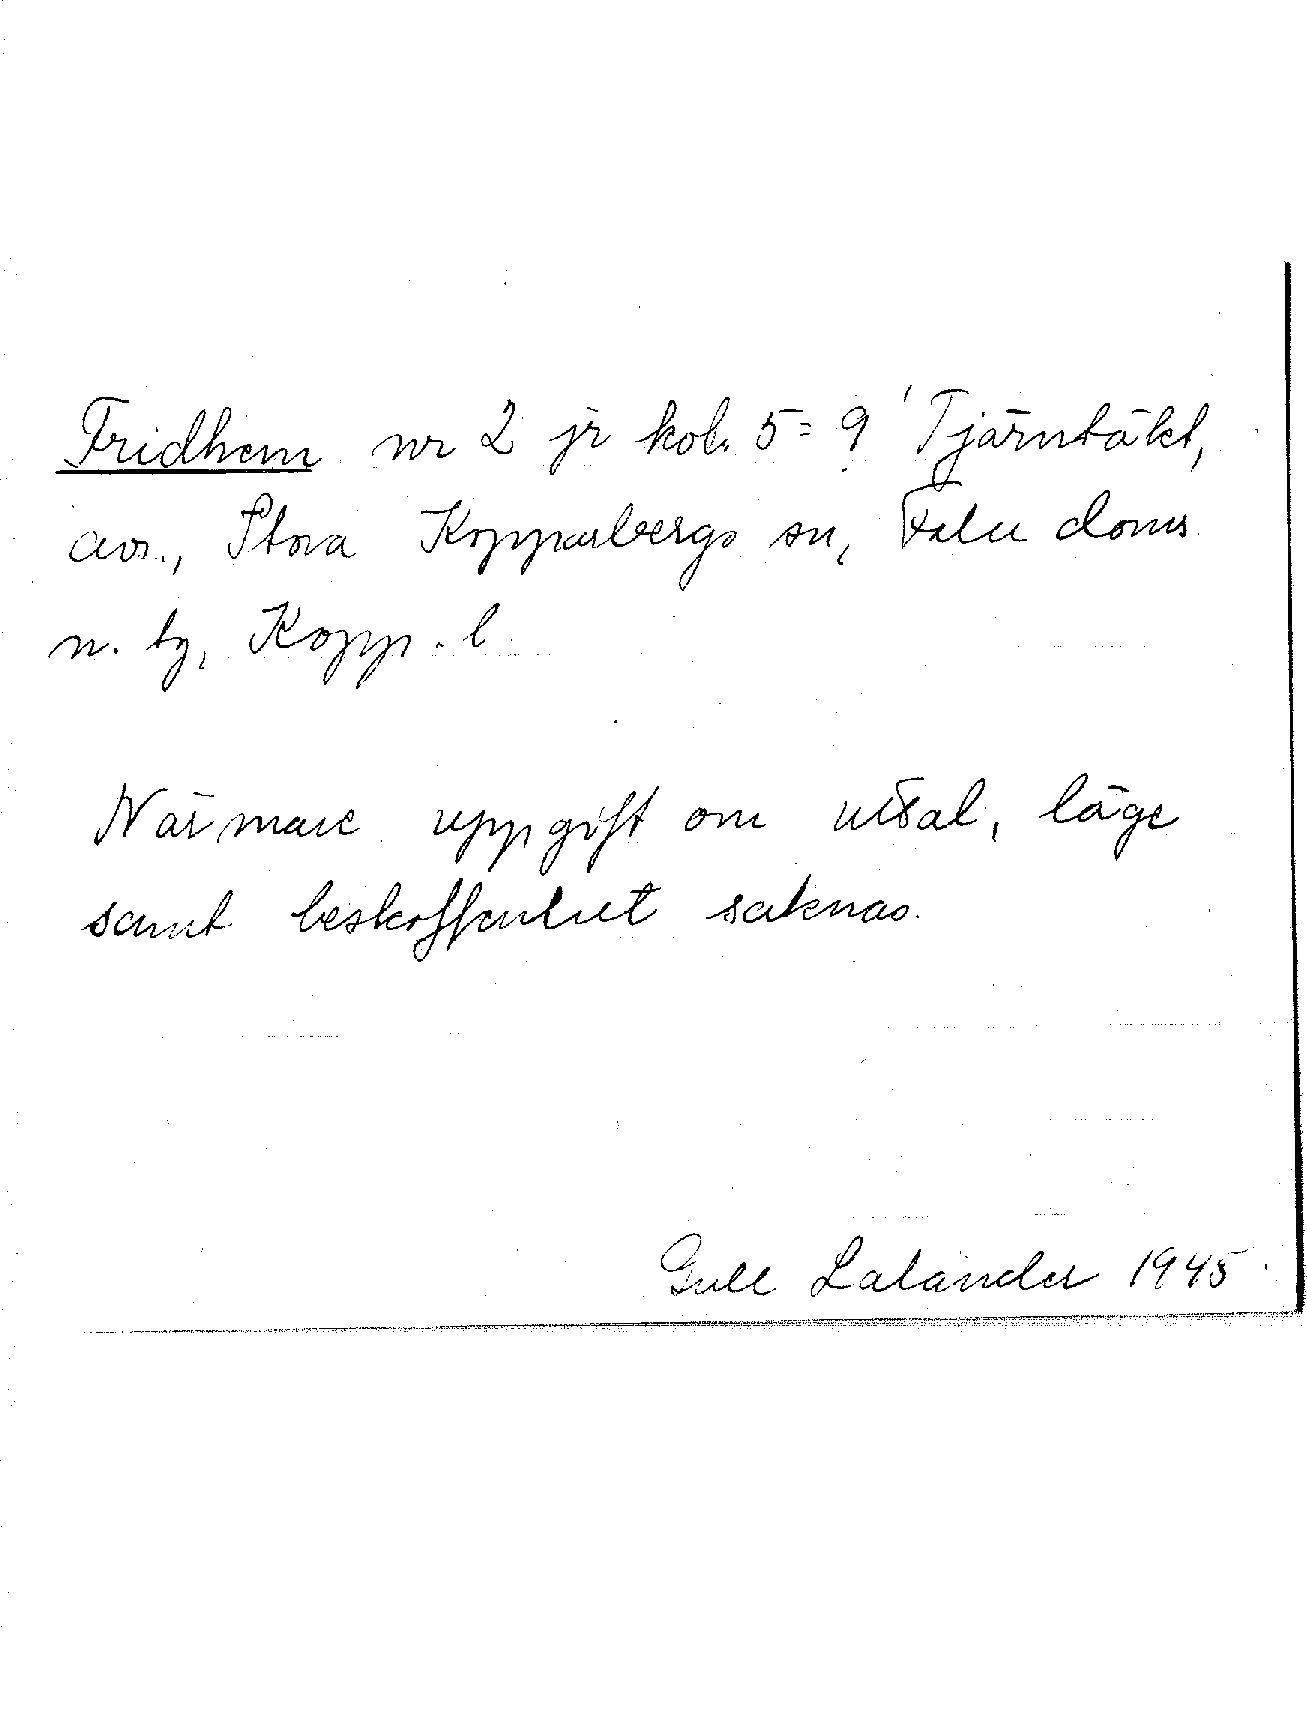 Fridhem nr 2 jr kol. 5 = 9 Tjärntäkt,
avs., Stora Kopparbergs sn, Falu doms
n. tg, Kopp. l
Närmare uppgift om uttal, läge
samt beskaffenhet saknas.
Gull Laländer 1945